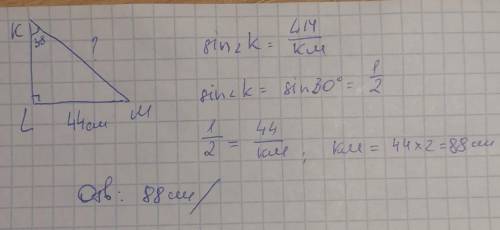 K
30
?
L
44см
M
sin∠K = —/KM
sin∠K = sin30° = 1/2
1/2 = 44/KM ; KM = 44×2=88см
Отв: 88см